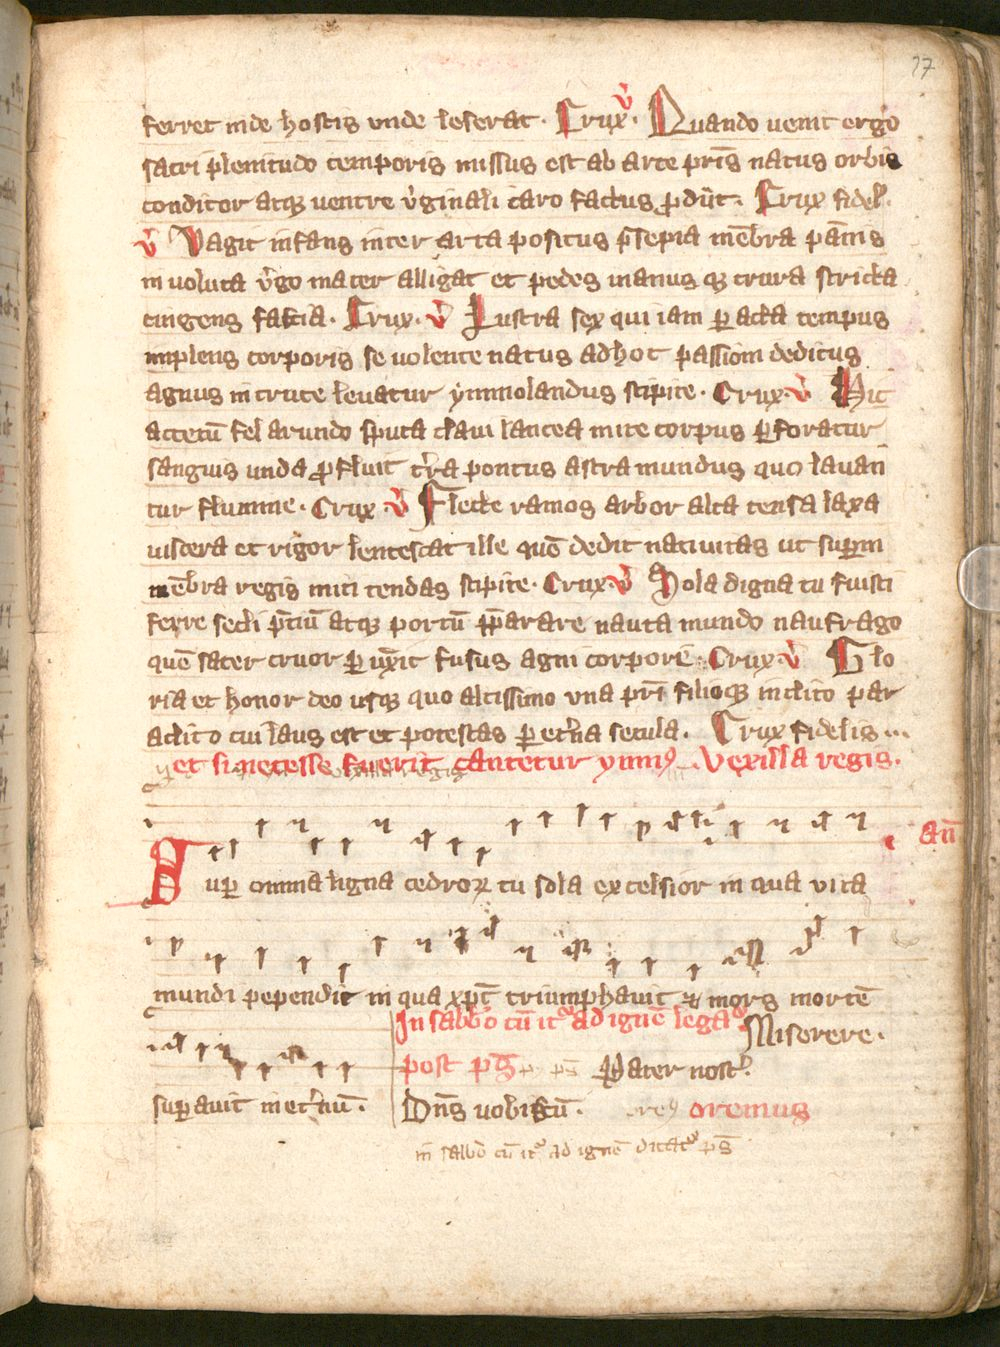 37
ferret inde hostis unde leserat. Crux. v̄ Quando uenit ergo
sacri plenitudo temporis missus est ab arce pr̄is natus orbis
conditor atq; uentre v̄ginali caro factus ꝓdiit. Crux fidel.
v̄ Vagit infans inter arta positus p̄sepia mēbra pānis
in uoluta v̄go mater alligat et pedes manus q; crura stricta
cingens fascia. Crux. v̄ Lustra sex qui iam ꝑacta tempus
implens corporis se uolente natus ad hoc passioni deditus
agnus in cruce leuatur ymmolandus stipite. Crux. v̄ Hic
acetū fel arundo sputa claui lancea mite corpus ꝑforatur
sanguis unda ꝓfluit tr̄ra pontus astra mundus quo lauan
tur flumine. Crux v̄ Flecte ramos arbor alta tensa laxa
uiscera et rigor lentescat ille quē dedit natiuitas ut suꝑni
mēbra regis miti tendas stipite. Crux. v̄ Sola digna tu fuisti
ferre secli p̄ciū atq; portū p̄parare nauta mundo naufrago
quē sacer cruor ꝑunxit fusus agni corpore. Crux. v̄ Glo
ria et honor deo usq; quo altissimo una pr̄i filioq; inclito par
aclito cui laus est et potestas ꝑ et̄na secula. Crux fidelis...
et si necesse fuerit cantetur ymnꝰ. Vexilla regis.
an̄
Suꝑ omnia ligna cedroꝝ tu sola excelsior in qua vita
mundi pependit in qua xp̄c triumphauit ⁊ mors mortē
suꝑauit in et̄nū.
In sabb̄o cū itᷣ ad ignē legaᷣ Miserere.
post ps̄ Pater nostᷣ.
Dn̄s uobiscū. oremus
in sabb̄o cū itᷣ ad ignē dicatᷣ ps̄